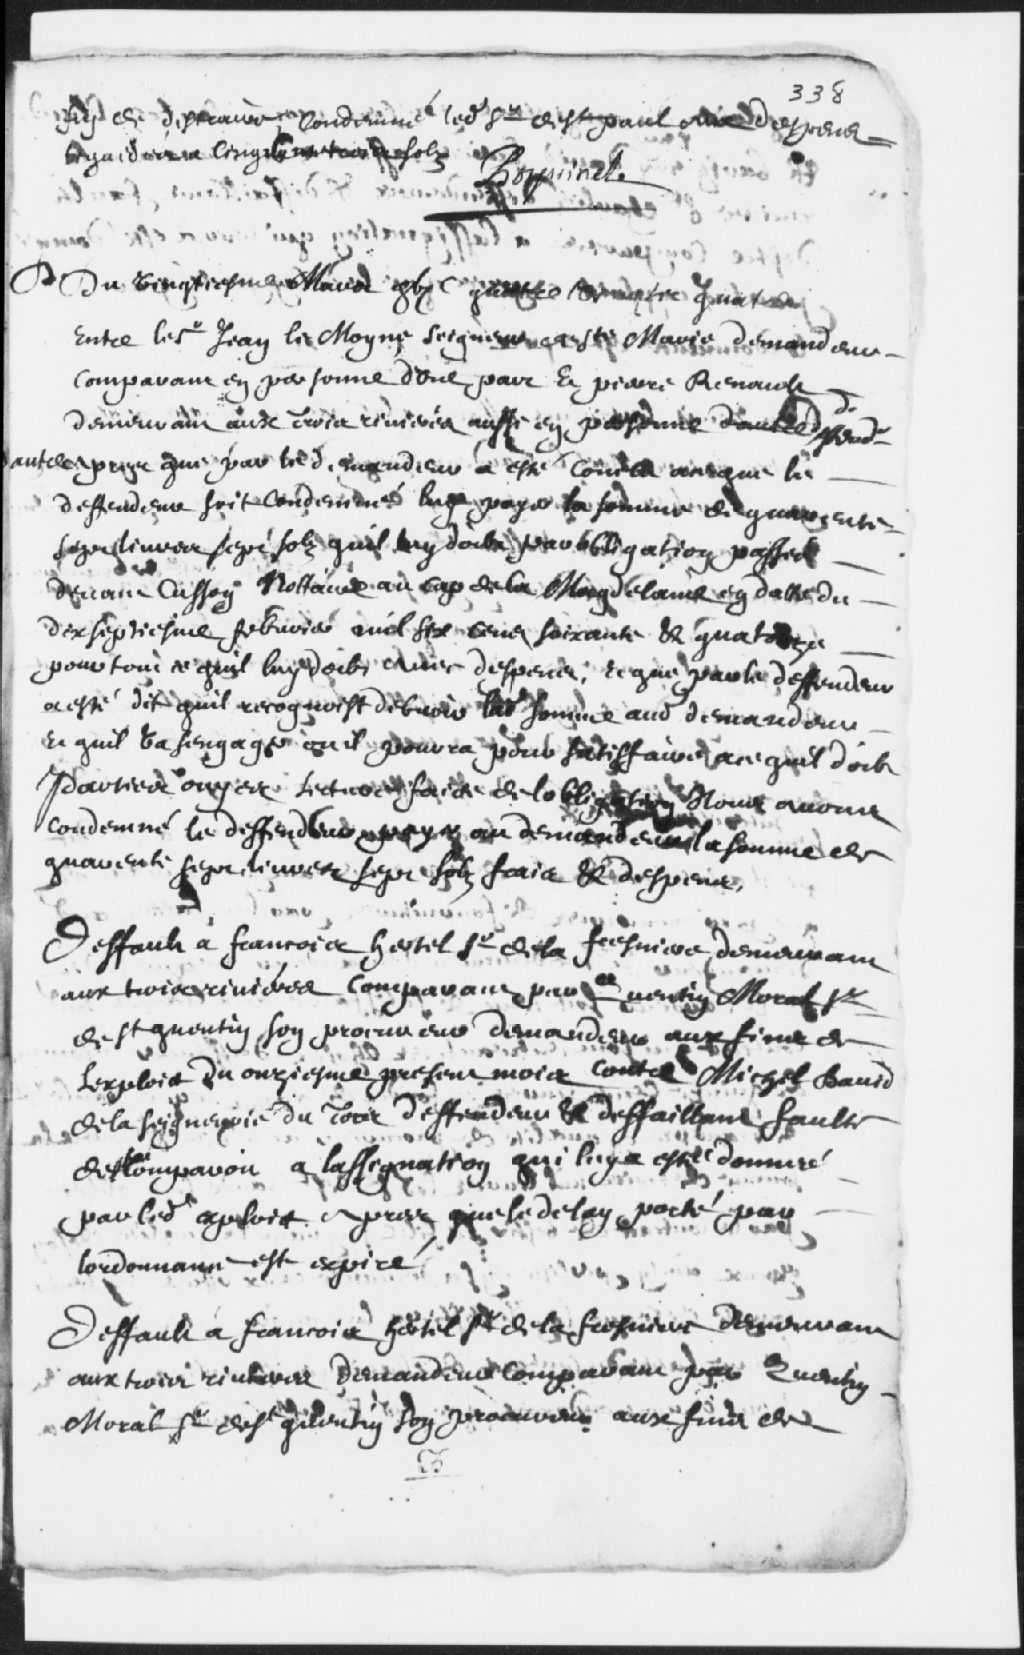 338
condemné led Sr de St paul aux Despens
liquidez a cinq solz
Boyvinet
Du vingtiesme Mars gbic quatre
Entre le Sr Jean le Moyne seigneur de Ste Marie demandeur
comparant en personne d'une part Et pierre Renault
demeurant aux trois rivieres aussy en personne deffendr
autre apres que par le demandeur a esté conclu a ce que le
deffendeur soit condemné luy payer la somme de quarente
sept livres sept solz quil luy doibt par obligation passee
devant Cusson Nottaire au cap de la Magdelaine en datte du
dixseptiesme febvrier mil six cens soixante & quatorze
pour tout ce quil luy doibt avec despens, Et que par le deffendeur
a esté dit quil recognoist debvoir lad somme aud demandeur
Et quil va sengager ou il pourra pour satisffaire a ce quil doibt
Parties ouyes lecture faicte de lobligation Nous avons
condemné le deffendeur payer au demandeur la somme de
quarente sept livres sept solz frais & despens,
Deffault a francois hertel Sr de la fresniere demeurant
aux trois rivieres comparant par Quentin Moral Sr
de St quentin son procureur demandeur aux fins de
lexploit du onziesme present mois contre Michel David
de la seigneurie du Tour deffendeur & deffaillant faulte
de comparoir a lassignation qui luy a esté donnee
par led exploit apres que le delay porté par
lordonnance est expiré
Deffault a francois hertel Sr de la fresniere demeurant
aux trois rivieres demandeur comparant par Quentin
Moral Sr de St quentin son procureur aux fins de